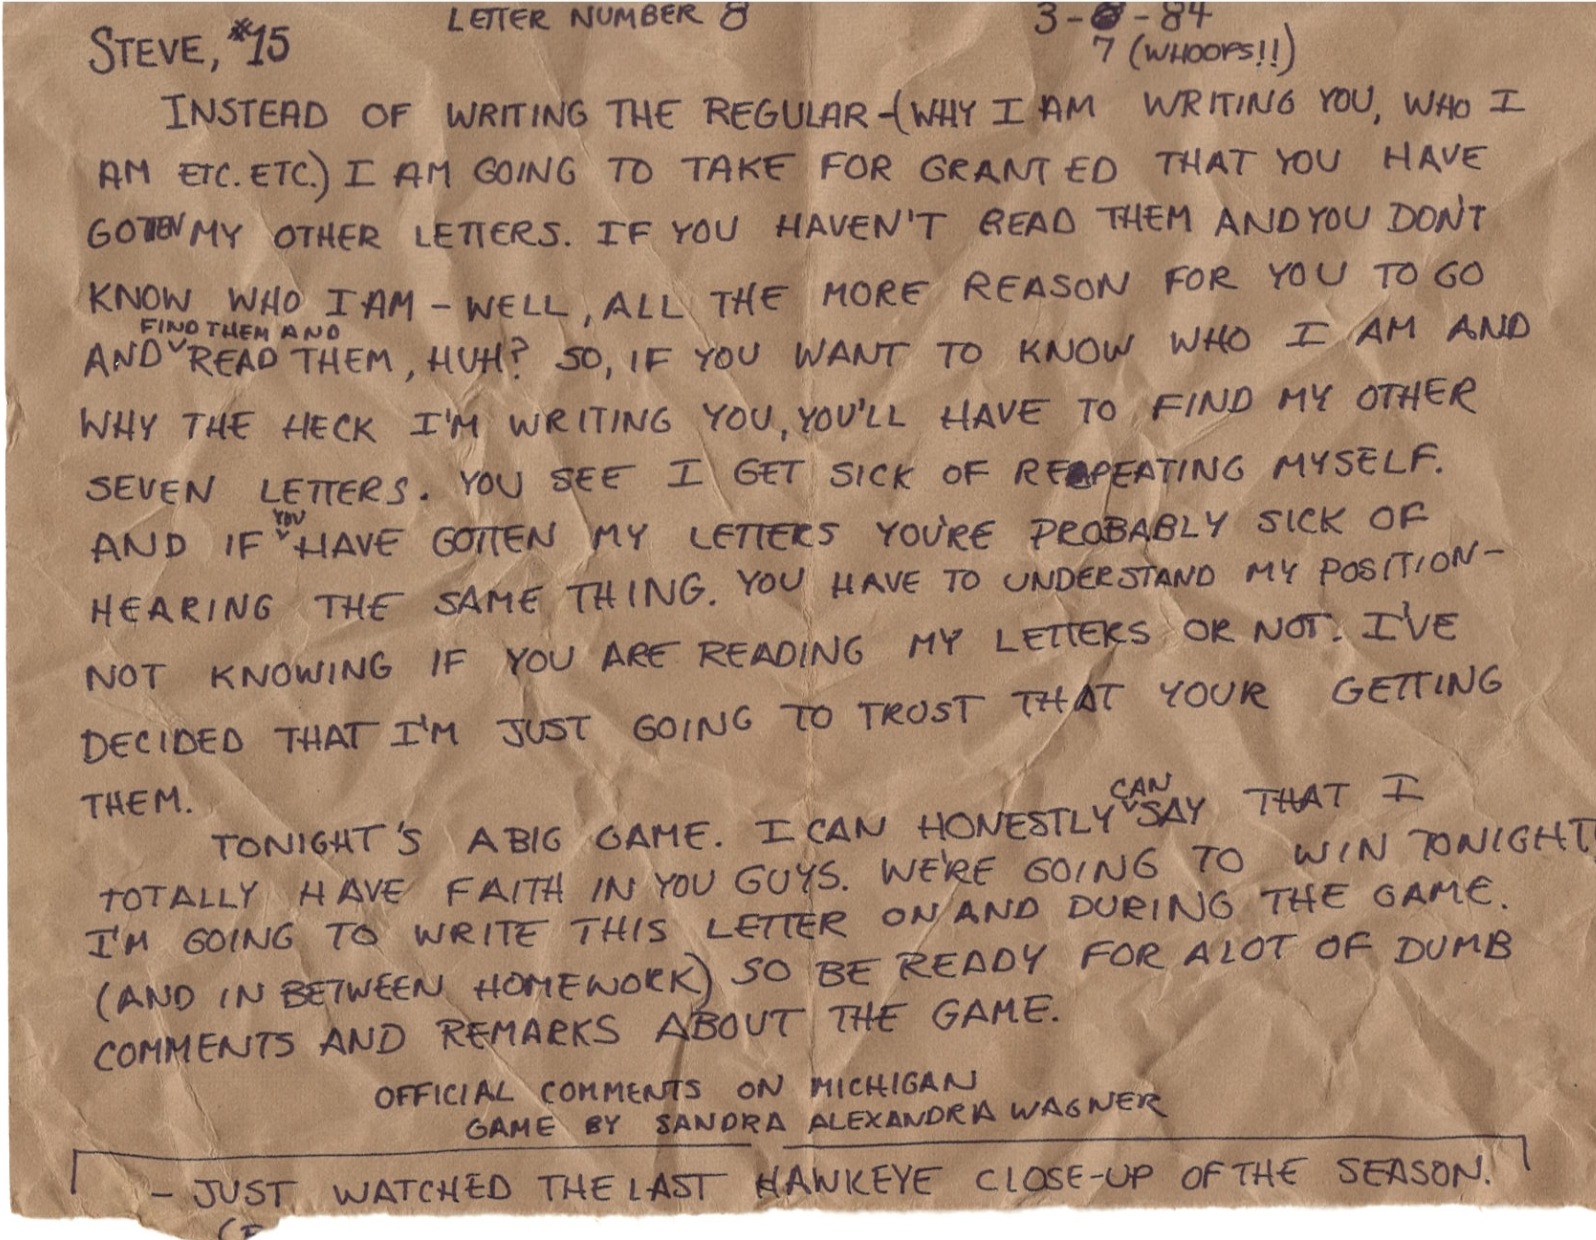 LETTER NUMBER 8 3-8-84
STEVE, #15 7 (WHOOPS!!)
INSTEAD OF WRITING THE REGULAR-(WHY I AM WRITING YOU, WHO I
AM ETC. ETC.) I AM GOING TO TAKE FOR GRANTED THAT YOU HAVE
GOTTEN MY OTHER LETTERS. IF YOU HAVEN'T READ THEM AND YOU DON'T
KNOW WHO I AM - WELL, ALL THE MORE REASON FOR YOU TO GO
FIND THEM AND
AND READ THEM, HUH? SO, IF YOU WANT TO KNOW WHO I AM AND
WHY THE HECK I'M WRITING YOU, YOU'LL HAVE TO FIND MY OTHER
SEVEN LETTERS. YOU SEE I GET SICK OF REPEATING MYSELF.
YOU
AND IF HAVE GOTTEN MY LETTERS YOU'RE PROBABLY SICK OF
HEARING THE SAME THING. YOU HAVE TO UNDERSTAND MY POSITION-
NOT KNOWING IF YOU ARE READING MY LETTERS OR NOT. I'VE
DECIDED THAT I'M JUST GOING TO TRUST THAT YOUR GETTING
THEM.
CAN
TONIGHT'S A BIG GAME. I CAN HONESTLY SAY THAT I
TOTALLY HAVE FAITH IN YOU GUYS. WE'RE GOING TO WIN TONIGHT
I'M GOING TO WRITE THIS LETTER ON AND DURING THE GAME.
(AND IN BETWEEN HOMEWORK) SO BE READY FOR A LOT OF DUMB
COMMENTS AND REMARKS ABOUT THE GAME.
OFFICIAL COMMENTS ON MICHIGAN
GAME BY SANDRA ALEXANDRA WAGNER
- JUST WATCHED THE LAST HAWKEYE CLOSE-UP OF THE SEASON.